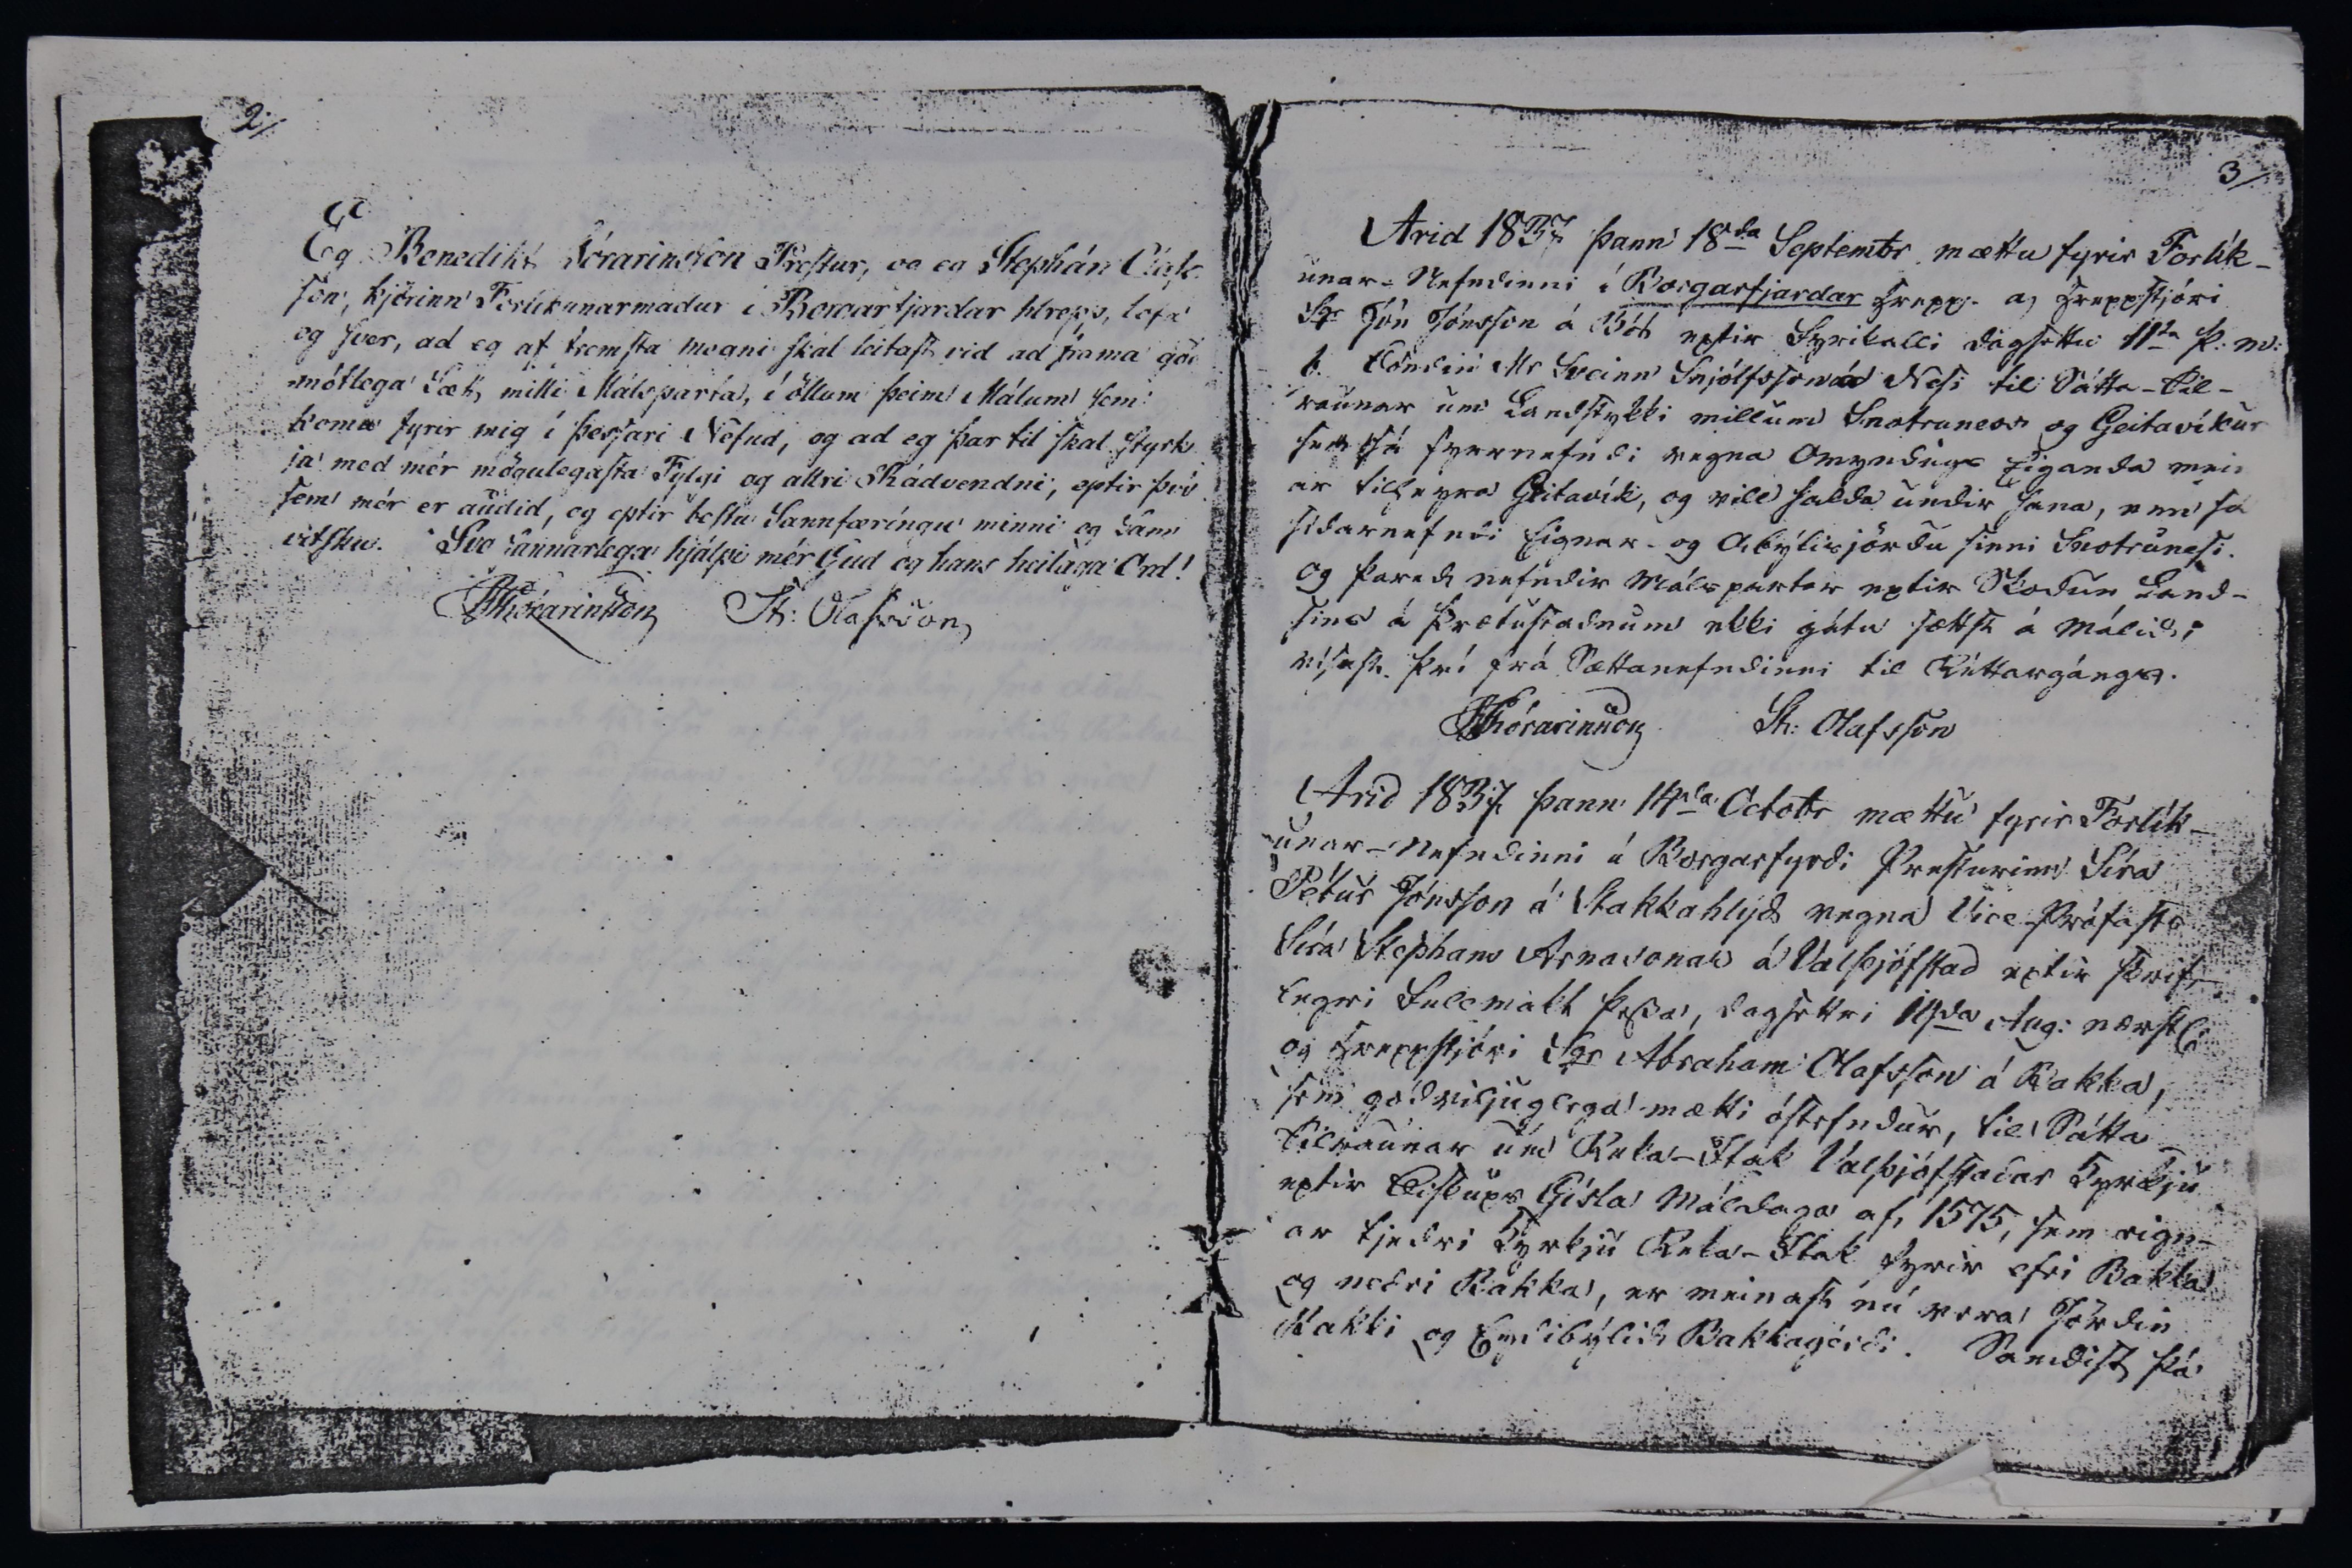 2/
Eg Benedikt Þórarinsson Prestur, og eg Stephán Olafs
son, kjörinn Forlíkunarmadur i Borgarfjardar hrepp, lofa
og sver, ad eg af fremsta megni skal leitast vid ad fróma god
mótlega Sætt milli Málsparta, i öllum þeim Málum sem
koma fyrir mig í þessari Nefnd, og ad eg þar til skal styrk
ja med mér mögulegasta Fylgi og allri Rádvendni, eptir því
sem mér er audid, og eptir bestu Sannfæringu minni og Sam
vitsku. Svo sannarlega hjálpi mér Gud og hans heilaga Ord!
BThorarinsson St: Olafsson
3/
Arid 1837 þann 18da Septembr mættu fyrir Forlík-
unar-Nefndinni í Borgarfjardar Hrepp a, Hreppstjóri
Sgr Jón Jónsson á Bót eptir Fyrikalli dagsettu 11ta þ: m:
b. Bóndin Mr Sveinn Snjólfsson á Nesi til Sátta-Til-
raunar um Landstykki millum Snotruness og Geitavíkur
sem sá fyrnefndi vegna Omyndugs Eiganda mein
ar tilheyra Geitavík, og vill halda undir hana, enn sá
sídarnefndi Eignar- og Abýlisjördu sinni Snotrunesi.
og þared nefndir Málspartar eptir Skodun Lands-
sins á Þrætustadnum ekki gátu sættst á Málid,
vísast því frá Sættanefndinni til Réttargángs.
BThórarinsson St: Olafsson
Arid 1837 þann 14da Octobr mættu fyrir Forlík-
unar-Nefndinni á Borgarfyrdi Presturinn Síra
Pétur Jónsson á Stakkahlíd vegna Vice-Prófasts
Síra Stephans Arnasonar á Valþjófstad eptir skrif-
legri Fullmakt þessa, dagsettri 14da Aug: næstl:
og Hreppstjóri Sgr Abraham Olafsson á Bakka,
sem gódviljuglega mætti óstefndur, til Sátta
tilraunar um Reka-Ítak Valþjófstadar Kyrkju
eptir Biskups Gísla Máldaga af 1575, sem eign-
ar tjedri Kyrkju Reka-Ítak fyrir efri Bakka
og nedri Bakka, er meinast nú vera Jördin
Bakki og Eydibýlid Bakkagérdi. Samdist þá